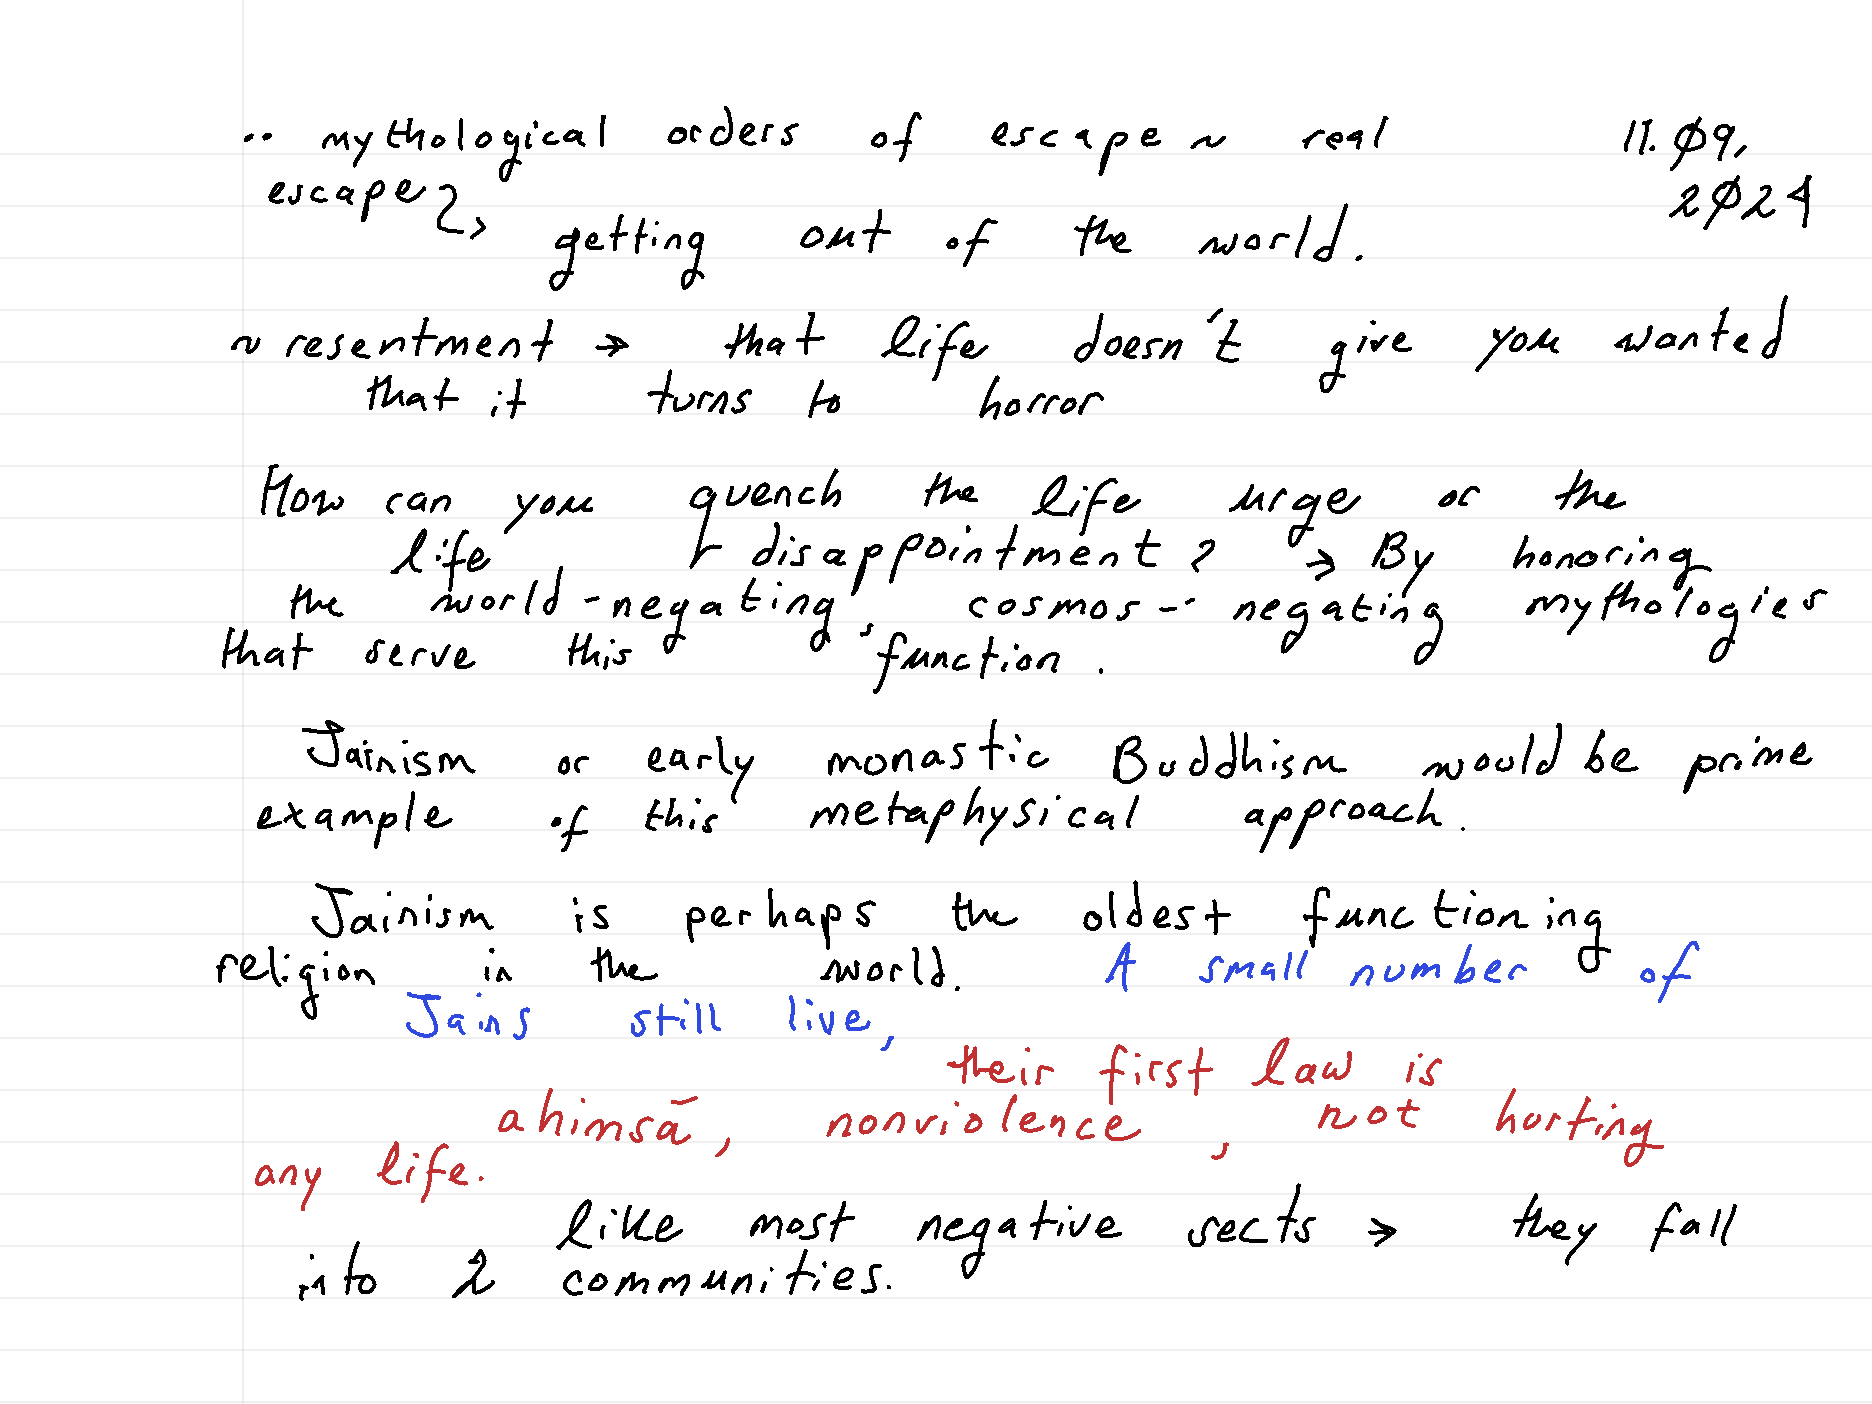 ·· mythological orders of escape ~ real
11. 09,
escape → getting out of the world.
2024
~ resentment → that life doesn't give you wanted
that it turns to horror
How can you quench the life urge or the
life disappointment? → By honoring
the world-negating, cosmos-negating mythologies
that serve this function.
Jainism or early monastic Buddhism would be prime
example of this metaphysical approach.
Jainism is perhaps the oldest functioning
religion in the world. A small number of
Jains still live,
their first law is
ahimsā, nonviolence, not hurting
any life.
like most negative sects → they fall
into 2 communities.